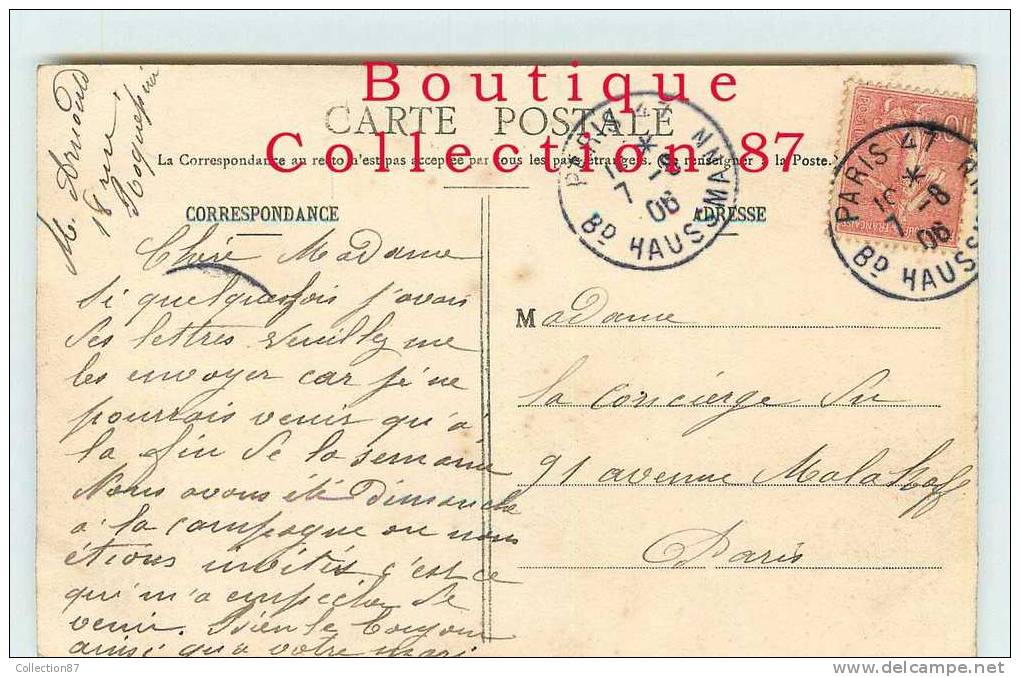 Boutique
Collection 87
CARTE POSTALE
La Correspondance au recto n'est pas acceptée par tous les pays étrangers. Se renseigner à la Poste.
M. Arnould
18 rue
Roquépine
CORRESPONDANCE
Chère Madame
Si quelquesfois j'avais
des lettres veuillez me
les envoyer car je ne
pourrais venir qu'à
la fin de la semaine
Nous avons été Dimanche
à la campagne ou nous
étions invités c'est ce
qui m'a empêcher de
venir. Bien le bonjour
ainsi qu'à votre mari
PARIS 47
7 -8
06
BD HAUSSMANN
ADRESSE
PARIS 47
7 -8
06
BD HAUSS
Madame
la concierge du
91 avenue Malakoff
Paris
Collection87
delcampe.net